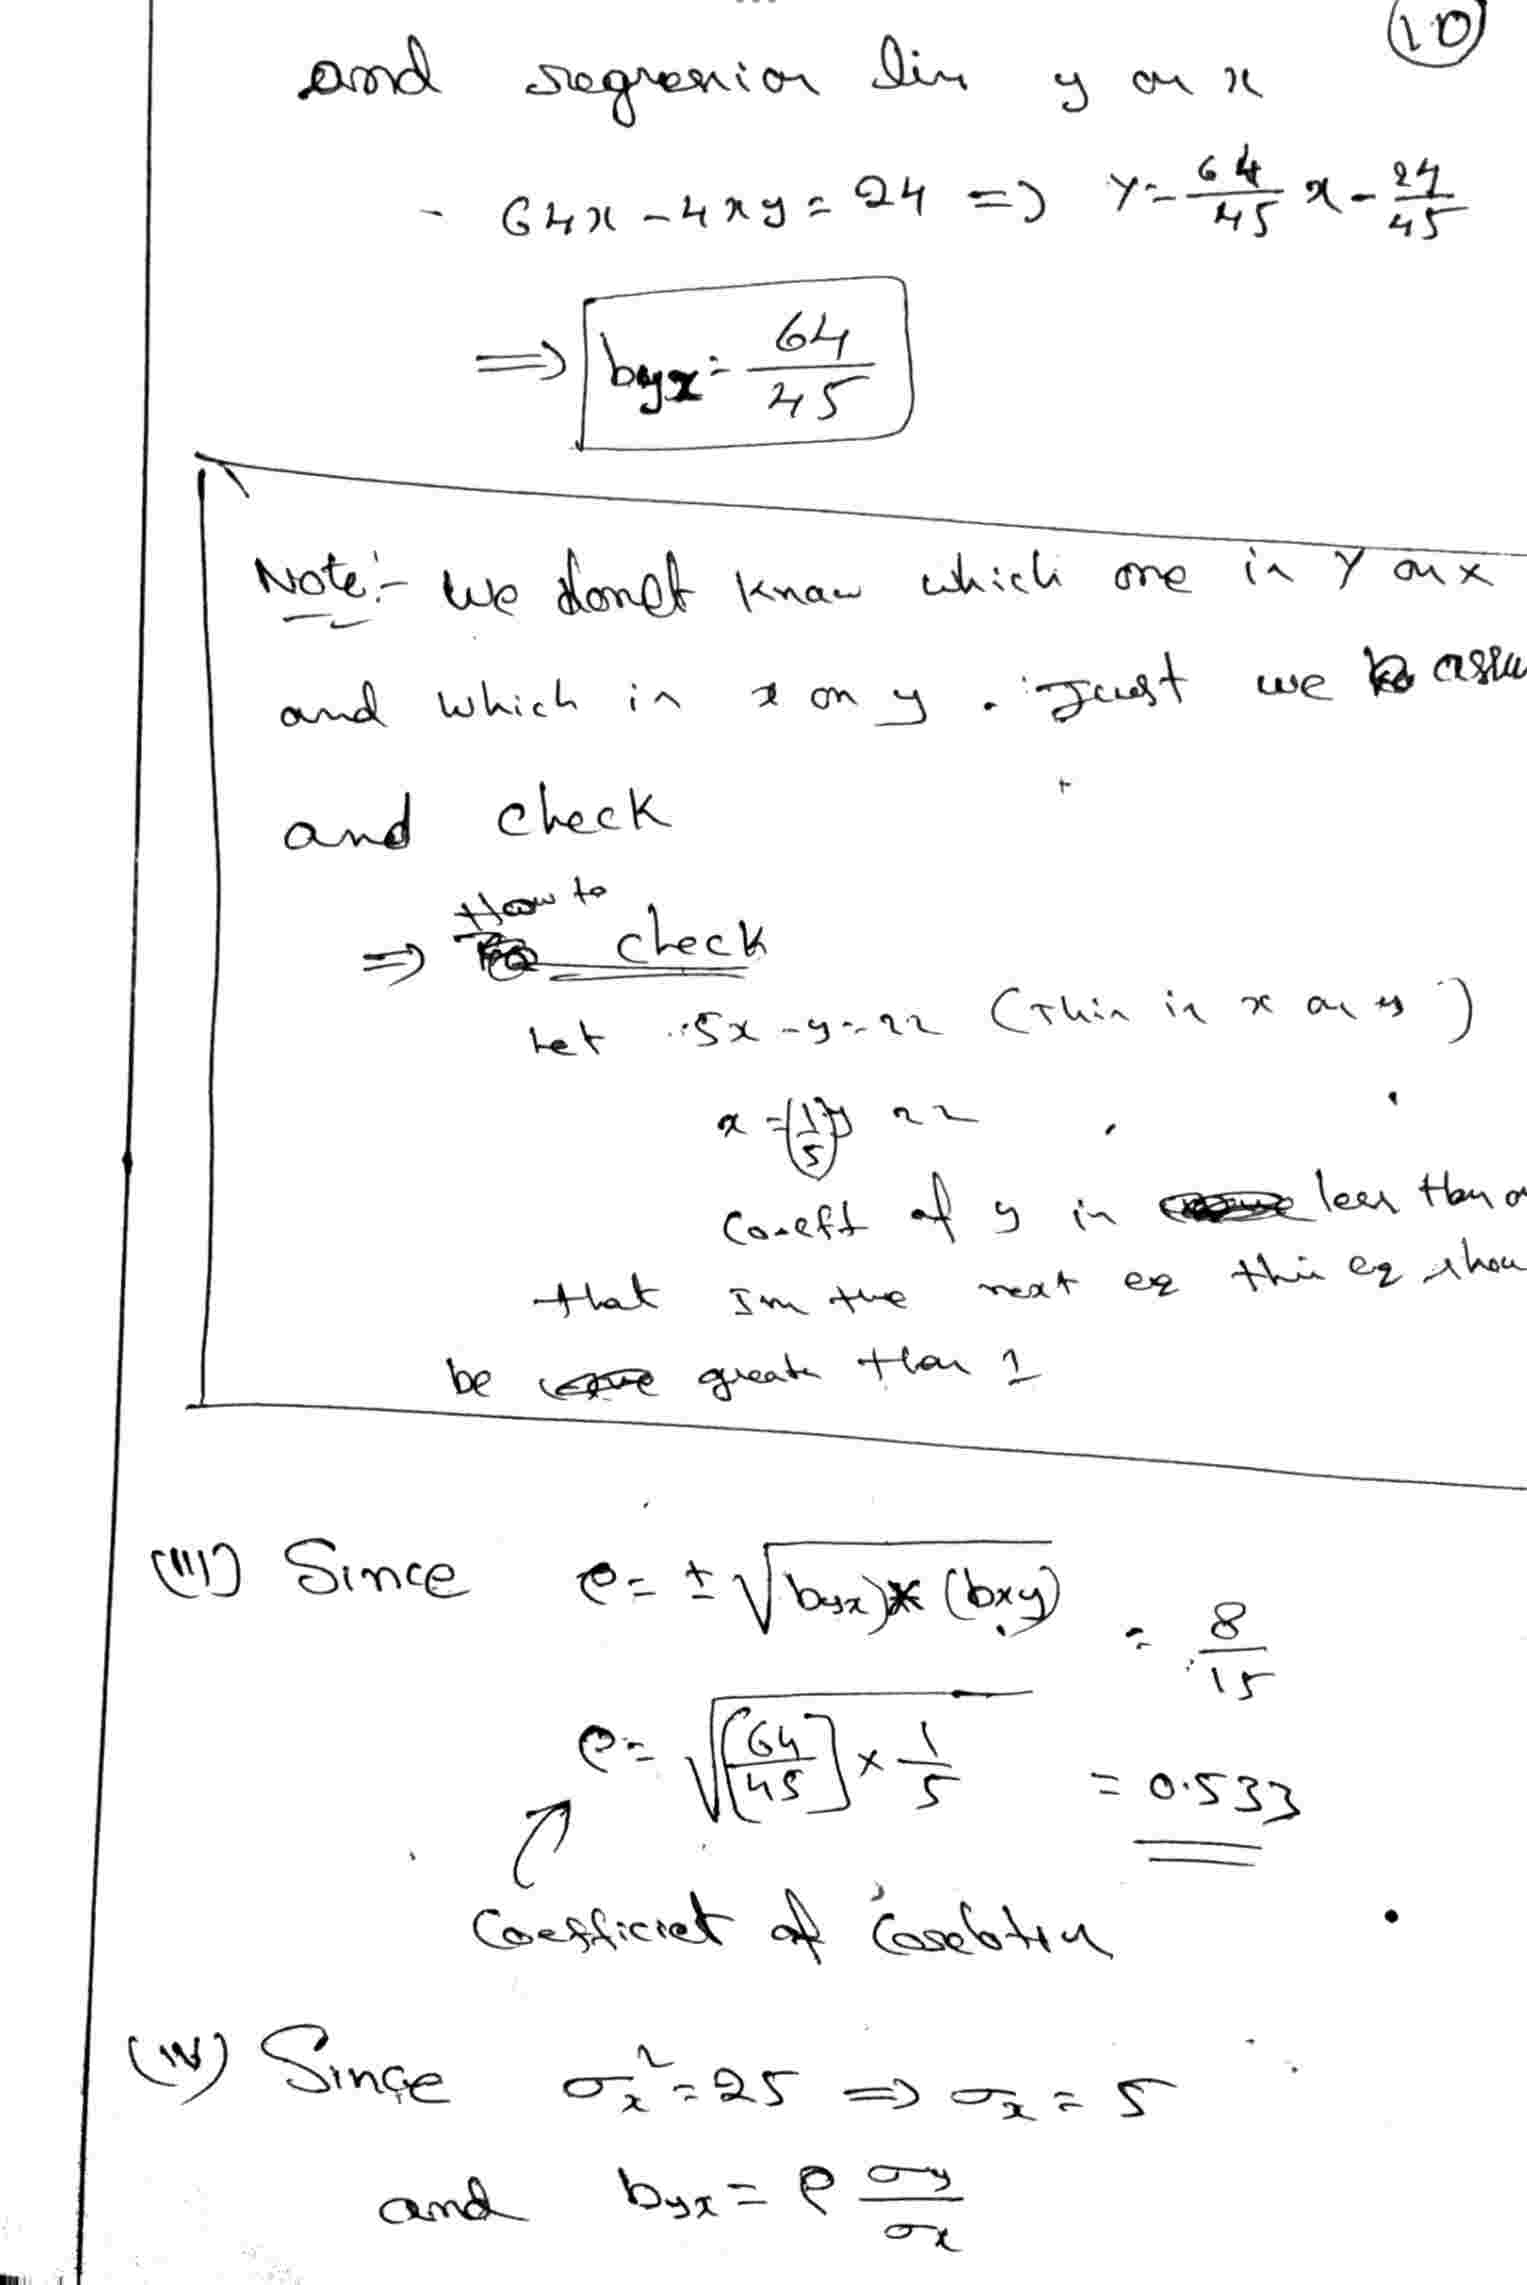 10
and regression line y on x
- 64x - 45y = 24 => y = 64/45 x - 24/45
=> byx = 64/45
Note:- we donot know which one is y on x
and which is x on y. Just we assu
and check
=> How to check
Let 5x - y = 22 (This is x on y)
x = (1/5)y 22
Coefft of y is less than o
that Im the next eq this eq shou
be greate than 1
(III) Since ρ = ± √byx)* (bxy)
= 8/15
ρ = √[64/45] × 1/5 = 0.533
Coefficiet of Corelation
(IV) Since σx² = 25 => σx = 5
and byx = ρ σy/σx